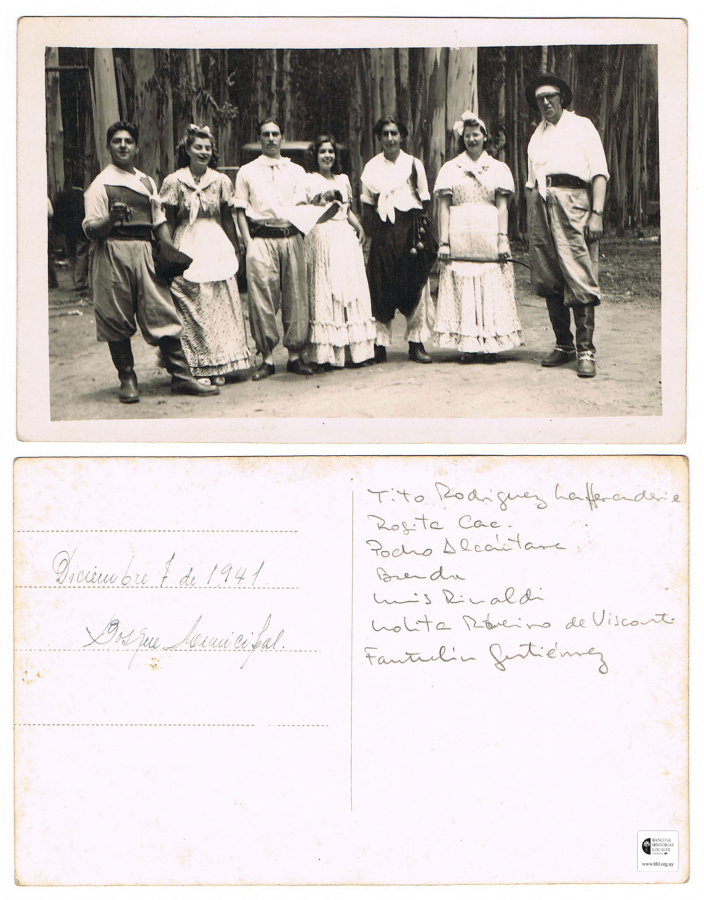 Diciembre 7 de 1941.
Bosque Municipal.
Tito Rodriguez
Rosita Cac.
Pedro Alcántara
Brenda
Luis Rinaldi
Lolita Ribeiro de Visconti
Gutiérrez
BANCO DE
HISTORIAS
LOCALES
www.bhl.org.uy